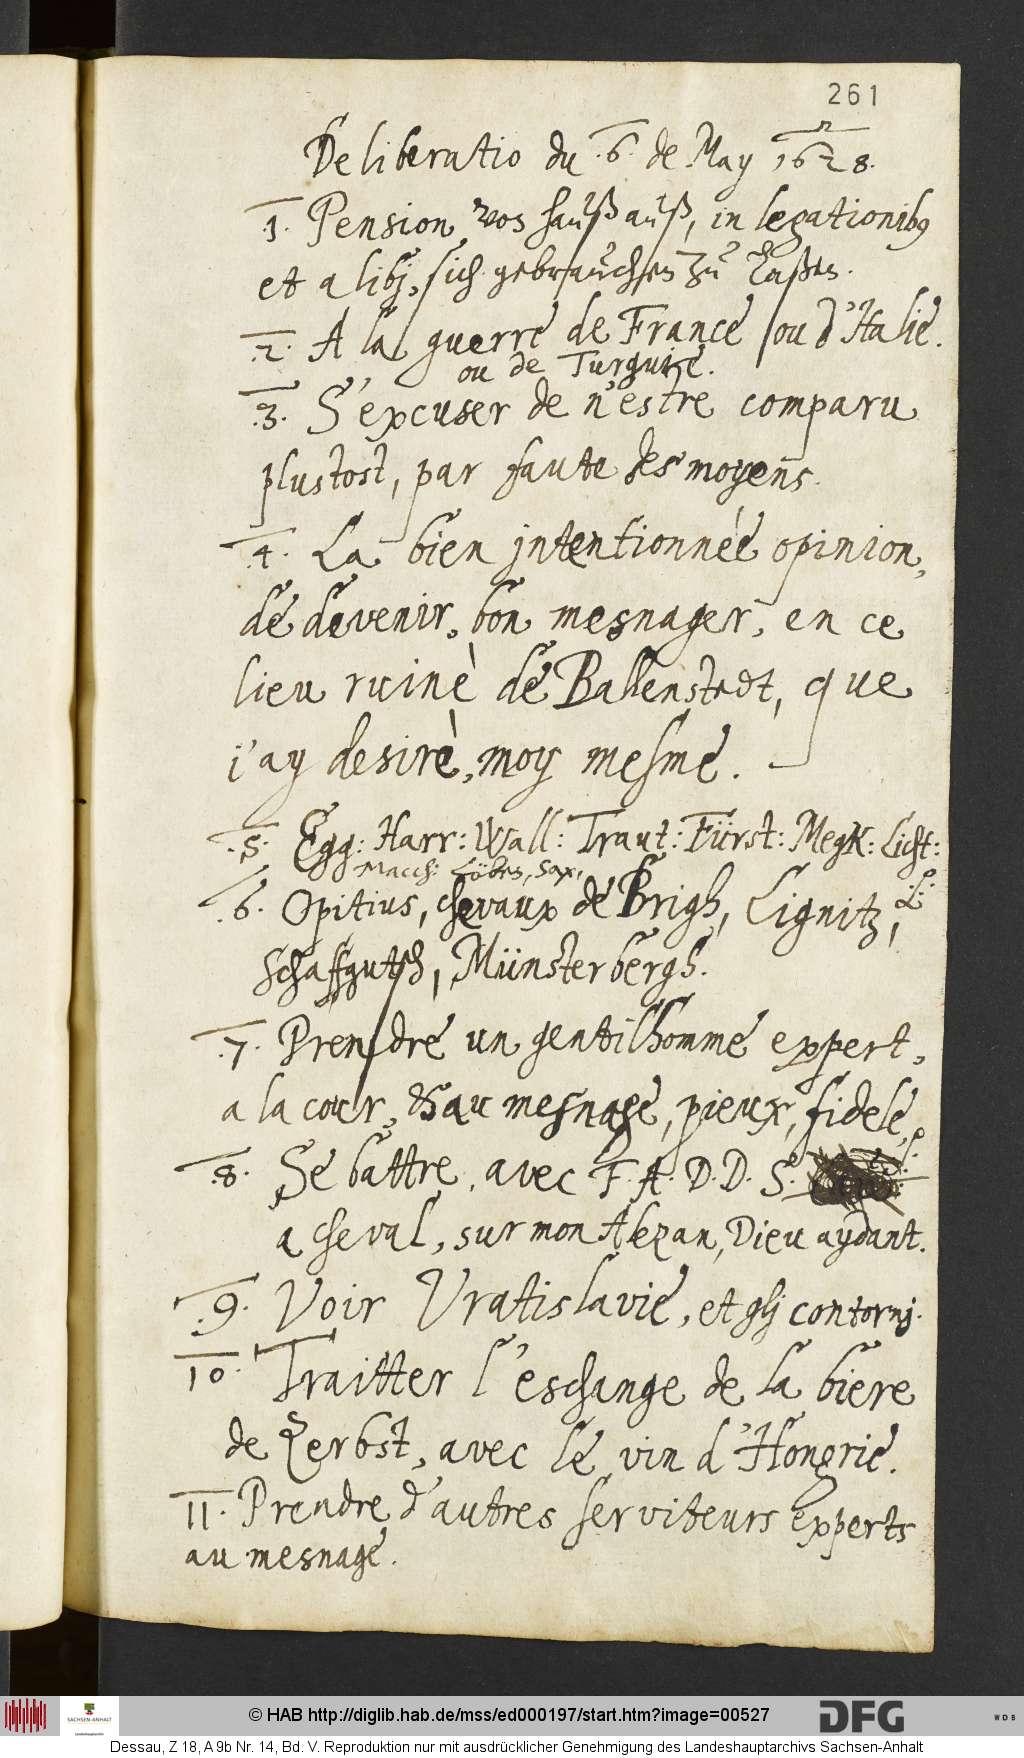 261
Deliberatio du .6. de May 1628.
.1. Pension von hauß auß, in legationibus
et alibj, sich gebrauchen zu laßen.
.2. A la guerre de France ou d'Italie.
ou de Turquie.
.3. S'excuser de n'estre comparu
plustost, par faute des moyens.
.4. La bien intentionnèe opinion,
de devenir, bon mesnager, en ce
lieu ruinè de Ballenstedt, que
j'ay desirè, moy mesme.
.5. Egg: Harr: Wall: Traut: Fürst: Megk: Licht:
Macch: Löben, Sax,
.6. Opitius, chevaux de Brigh, Lignitz,
Schaffgutsch, Münsterbergh.
.7. Prendre un gentilhomme expert,
a la cour, & au mesnage, pieux, fidele,
.8. Se battre, avec F. A. D. D. S.
a cheval, sur mon Alezan, Dieu aydant.
.9. Voir Vratislavie, et glj contornj.
10. Traitter l'eschange de la biere
de Zerbst, avec le vin d'Hongrie.
11. Prendre d'autres serviteurs experts
au mesnage.
SACHSEN-ANHALT
© HAB http://diglib.hab.de/mss/ed000197/start.htm?image=00527
DFG
WDB
Dessau, Z 18, A 9b Nr. 14, Bd. V. Reproduktion nur mit ausdrücklicher Genehmigung des Landeshauptarchivs Sachsen-Anhalt